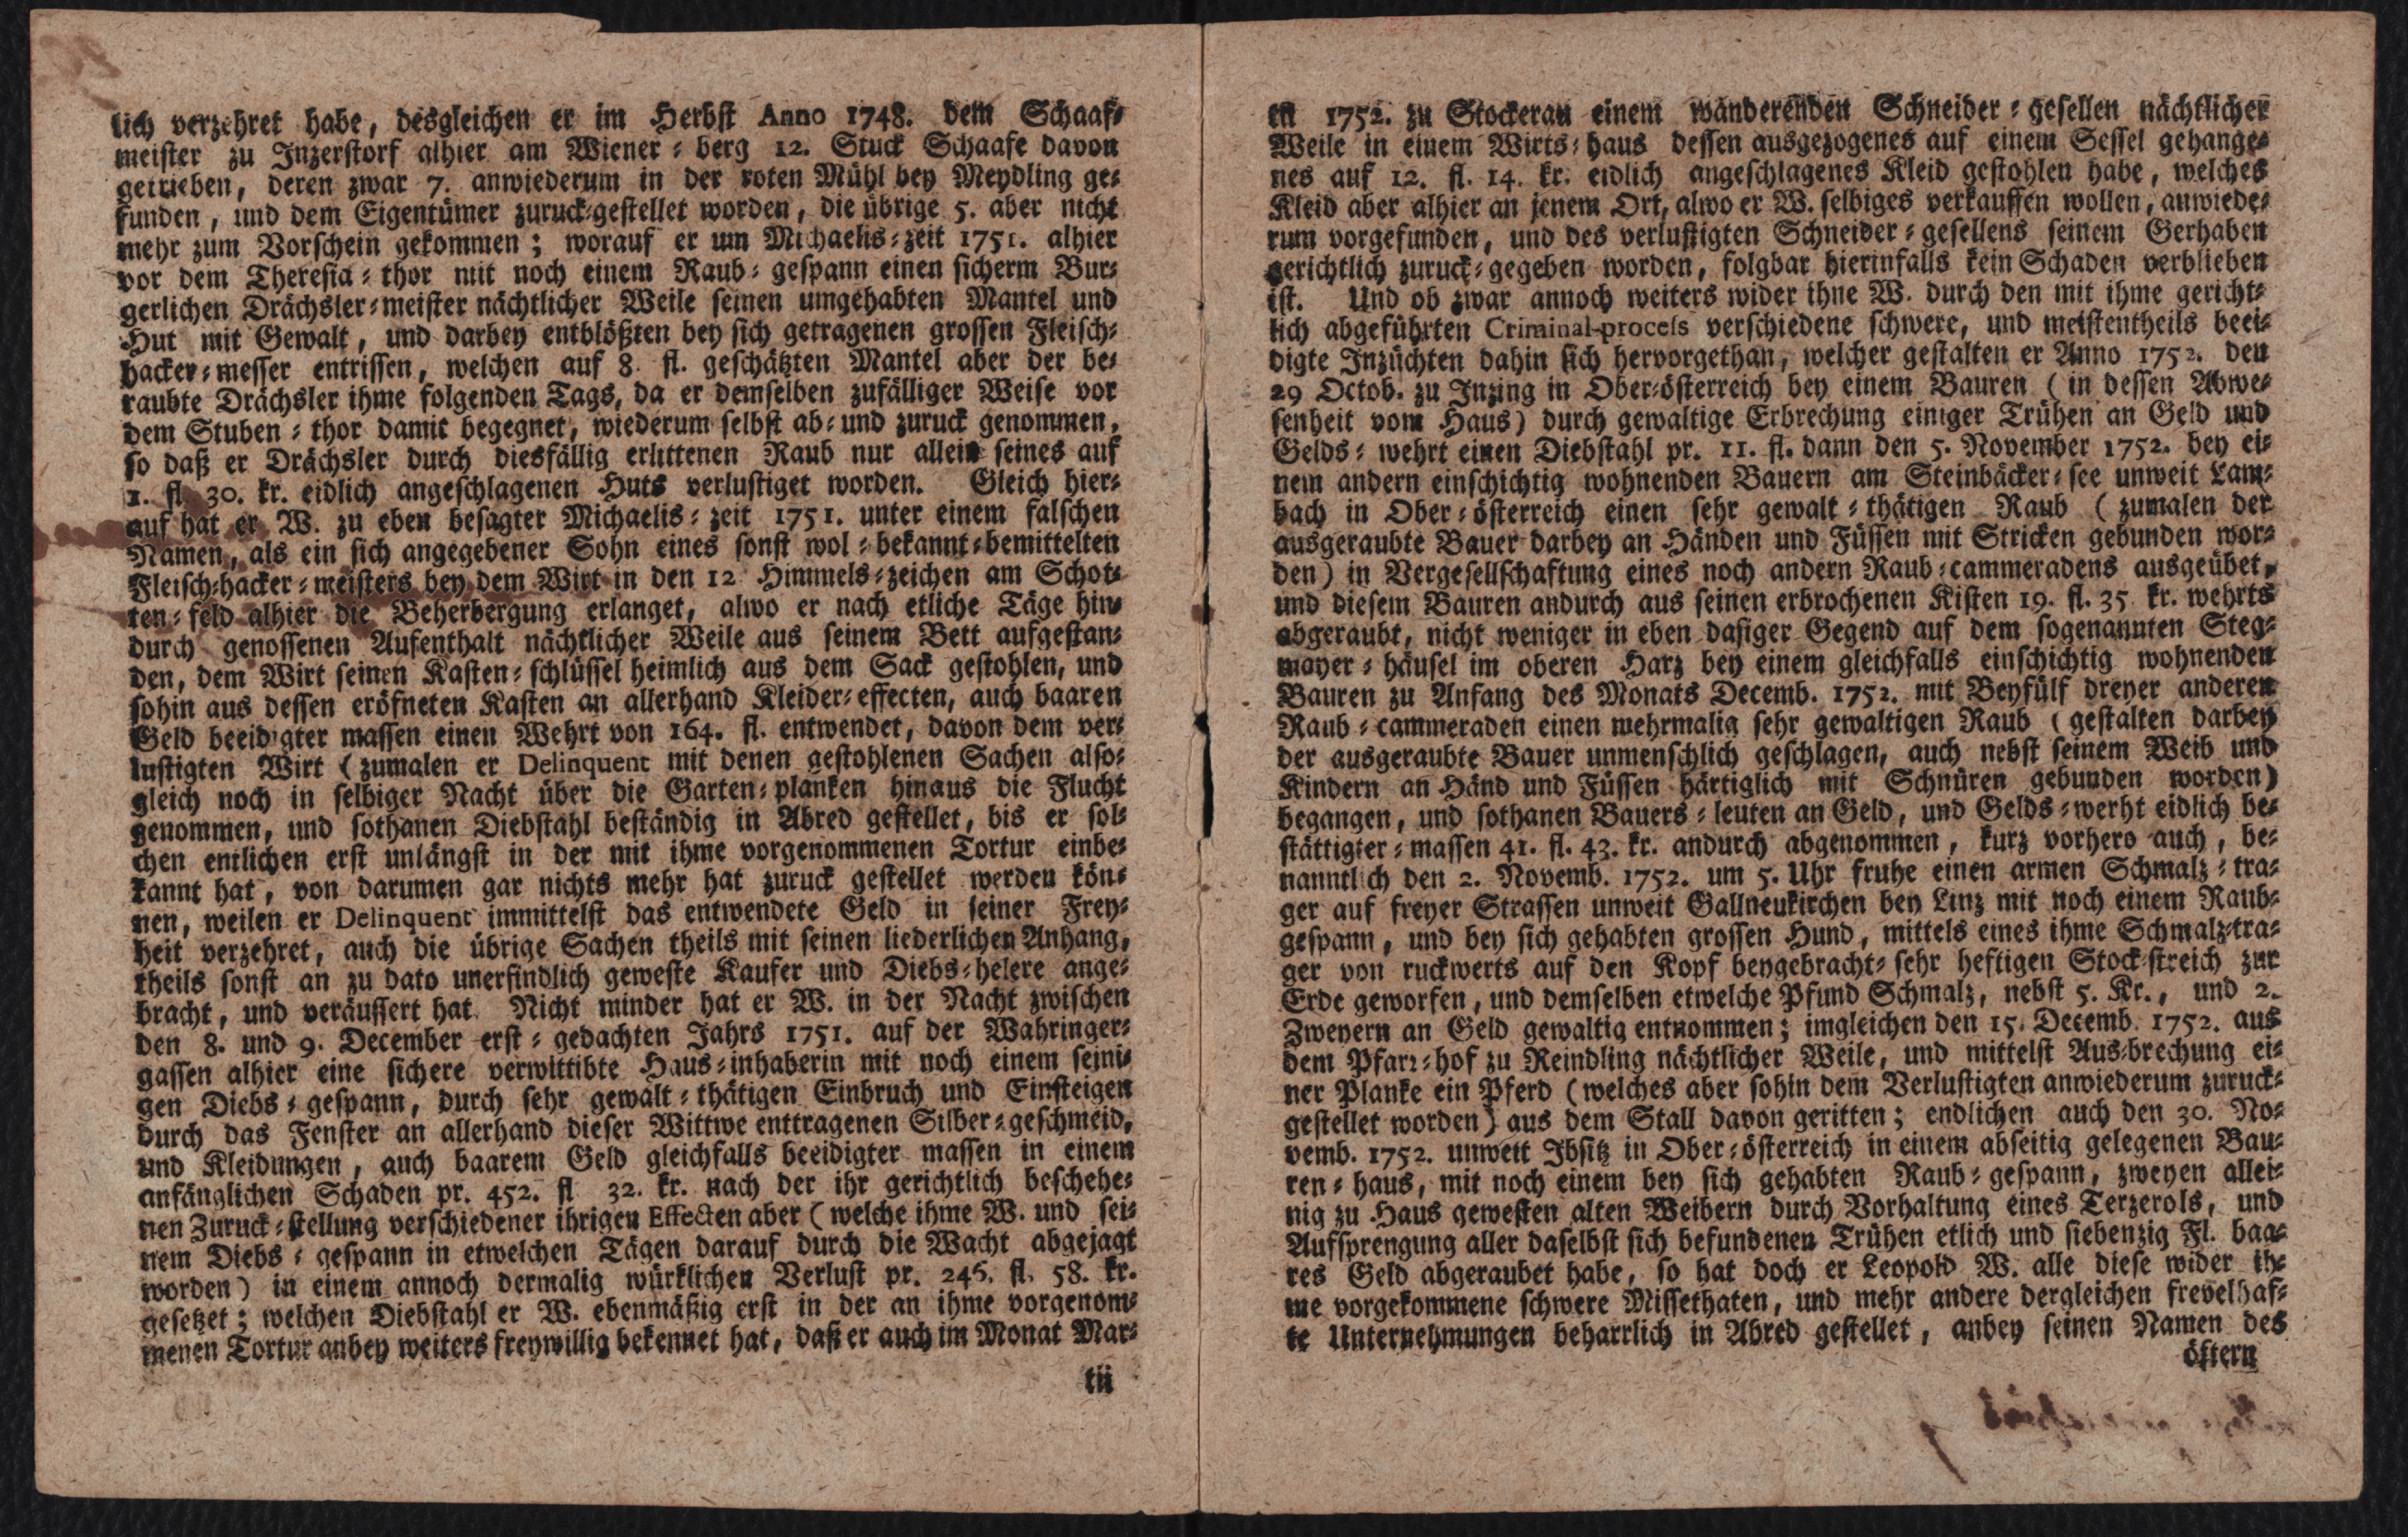 lich verzehret habe, desgleichen er im Herbst Anno 1748. dem Schaaf-
meister zu Inzerstorf alhier am Wiener-berg 12. Stuck Schaafe davon
getrieben, deren zwar 7. anwiederum in der roten Mühl bey Meydling ge-
funden, und dem Eigentümer zuruck-gestellet worden, die übrige 5. aber nicht
mehr zum Vorschein gekommen; worauf er um Michaelis-zeit 1751. alhier
vor dem Theresia-thor mit noch einem Raub-gespann einen sicherm Bur-
gerlichen Drächsler-meister nächtlicher Weile seinen umgehabten Mantel und
Hut mit Gewalt, und darbey entblößten bey sich getragenen grossen Fleisch-
hacker-messer entrissen, welchen auf 8. fl. geschätzten Mantel aber der be-
raubte Drächsler ihme folgenden Tags, da er demselben zufälliger Weise vor
dem Stuben-thor damit begegnet, wiederum selbst ab- und zuruck genommen,
so daß er Drächsler durch diesfällig erlittenen Raub nur allein seines auf
1. fl. 30. kr. eidlich angeschlagenen Huts verlustiget worden. Gleich hier-
auf hat er W. zu eben besagter Michaelis-zeit 1751. unter einem falschen
Namen, als ein sich angegebener Sohn eines sonst wol-bekannt-bemittelten
Fleisch-hacker-meisters bey dem Wirt in den 12 Himmels-zeichen am Schot-
ten-feld alhier die Beherbergung erlanget, alwo er nach etliche Täge hin-
durch genossenen Aufenthalt nächtlicher Weile aus seinem Bett aufgestan-
den, dem Wirt seinen Kasten-schlüssel heimlich aus dem Sack gestohlen, und
sohin aus dessen eröfneten Kasten an allerhand Kleider-effecten, auch baaren
Geld beeidigter massen einen Wehrt von 164. fl. entwendet, davon dem ver-
lustigten Wirt (zumalen er Delinquent mit denen gestohlenen Sachen also-
gleich noch in selbiger Nacht über die Garten-planken hinaus die Flucht
genommen, und sothanen Diebstahl beständig in Abred gestellet, bis er sol-
chen entlichen erst unlängst in der mit ihme vorgenommenen Tortur einbe-
kannt hat, von darumen gar nichts mehr hat zuruck gestellet werden kön-
nen, weilen er Delinquent immittelst das entwendete Geld in seiner Frey-
heit verzehret, auch die übrige Sachen theils mit seinen liederlichen Anhang,
theils sonst an zu dato unerfindlich geweste Kaufer und Diebs-helere ange-
bracht, und veräussert hat. Nicht minder hat er W. in der Nacht zwischen
den 8. und 9. December erst-gedachten Jahrs 1751. auf der Wahringer-
gassen alhier eine sichere verwittibte Haus-inhaberin mit noch einem seini-
gen Diebs-gespann, durch sehr gewalt-thätigen Einbruch und Einsteigen
durch das Fenster an allerhand dieser Wittwe enttragenen Silber-geschmeid,
und Kleidungen, auch baarem Geld gleichfalls beeidigter massen in einem
anfänglichen Schaden pr. 452. fl 32. kr. nach der ihr gerichtlich beschehe-
nen Zuruck-stellung verschiedener ihrigen Effecten aber (welche ihme W. und sei-
nem Diebs-gespann in etwelchen Tägen darauf durch die Wacht abgejagt
worden) in einem annoch dermalig würklichen Verlust pr. 246. fl. 58. kr.
gesetzet; welchen Diebstahl er W. ebenmäßig erst in der an ihme vorgenom-
menen Tortur anbey weiters freywillig bekennet hat, daß er auch im Monat Mar-
tii
tii 1752. zu Stockerau einem wanderenden Schneider-gesellen nächtlicher
Weile in einem Wirts-haus dessen ausgezogenes auf einem Sessel gehange-
nes auf 12. fl. 14. kr. eidlich angeschlagenes Kleid gestohlen habe, welches
Kleid aber alhier an jenem Ort, alwo er W. selbiges verkauffen wollen, anwiede-
rum vorgefunden, und des verlustigten Schneider-gesellens seinem Gerhaben
gerichtlich zuruck-gegeben worden, folgbar hierinfalls kein Schaden verblieben
ist. Und ob zwar annoch weiters wider ihne W. durch den mit ihme gericht-
lich abgeführten Criminal-process verschiedene schwere, und meistentheils beei-
digte Inzüchten dahin sich hervorgethan, welcher gestalten er Anno 1752. den
29 Octob. zu Inzing in Ober-österreich bey einem Bauren (in dessen Abwe-
senheit vom Haus) durch gewaltige Erbrechung einiger Trühen an Geld und
Gelds-wehrt einen Diebstahl pr. 11. fl. dann den 5. November 1752. bey ei-
nem andern einschichtig wohnenden Bauern am Steinbäcker-see unweit Lam-
bach in Ober-österreich einen sehr gewalt-thätigen Raub (zumalen der
ausgeraubte Bauer darbey an Händen und Füssen mit Stricken gebunden wor-
den) in Vergesellschaftung eines noch andern Raub-cammeradens ausgeübet,
und diesem Bauren andurch aus seinen erbrochenen Kisten 19. fl. 35 kr. wehrts
abgeraubt, nicht weniger in eben dasiger Gegend auf dem sogenannten Steg-
mayer-häusel im oberen Harz bey einem gleichfalls einschichtig wohnenden
Bauren zu Anfang des Monats Decemb. 1752. mit Beyfülf dreyer anderen
Raub-cammeraden einen mehrmalig sehr gewaltigen Raub (gestalten darbey
der ausgeraubte Bauer unmenschlich geschlagen, auch nebst seinem Weib und
Kindern an Händ und Füssen härtiglich mit Schnüren gebunden worden)
begangen, und sothanen Bauers-leuten an Geld, und Gelds-werht eidlich be-
stättigter-massen 41. fl. 43. kr. andurch abgenommen, kurz vorhero auch, be-
nanntlich den 2. Novemb. 1752. um 5. Uhr fruhe einen armen Schmalz-tra-
ger auf freyer Strassen unweit Gallneukirchen bey Linz mit noch einem Raub-
gespann, und bey sich gehabten grossen Hund, mittels eines ihme Schmalz-tra-
ger von ruckwerts auf den Kopf beygebracht-sehr heftigen Stock-streich zur
Erde geworfen, und demselben etwelche Pfund Schmalz, nebst 5. Kr., und 2.
Zweyern an Geld gewaltig entnommen; imgleichen den 15. Decemb. 1752. aus
dem Pfarr-hof zu Reindling nächtlicher Weile, und mittelst Aus-brechung ei-
ner Planke ein Pferd (welches aber sohin dem Verlustigten anwiederum zuruck-
gestellet worden) aus dem Stall davon geritten; endlichen auch den 30. No-
vemb. 1752. unweit Ibsitz in Ober-österreich in einem abseitig gelegenen Bau-
ren-haus, mit noch einem bey sich gehabten Raub-gespann, zweyen allei-
nig zu Haus gewesten alten Weibern durch Vorhaltung eines Terzerols, und
Aufsprengung aller daselbst sich befundenen Trühen etlich und siebenzig Fl. baa-
res Geld abgeraubet habe, so hat doch er Leopold W. alle diese wider ih-
me vorgekommene schwere Missethaten, und mehr andere dergleichen frevelhaf-
te Unternehmungen beharrlich in Abred gestellet, anbey seinen Namen des
öftern